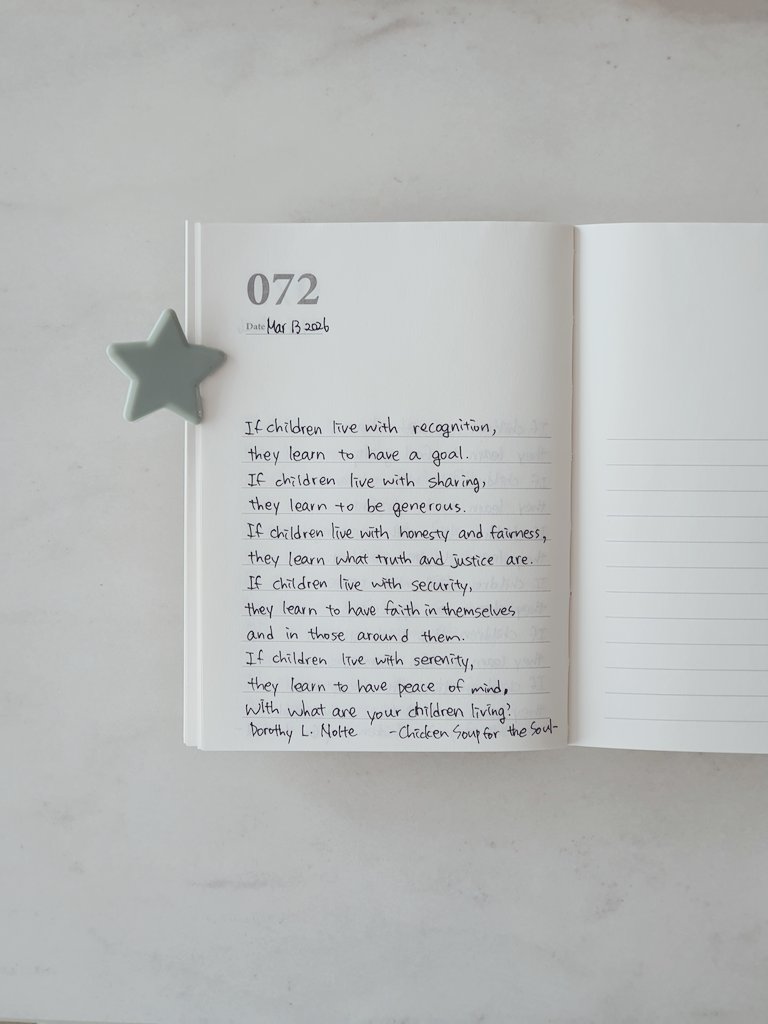 072
Date Mar 13 2026
If children live with recognition,
they learn to have a goal.
If children live with sharing,
they learn to be generous.
If children live with honesty and fairness,
they learn what truth and justice are.
If children live with security,
they learn to have faith in themselves
and in those around them.
If children live with serenity,
they learn to have peace of mind,
With what are your children living?
Dorothy L. Nolte -Chicken Soup for the Soul-